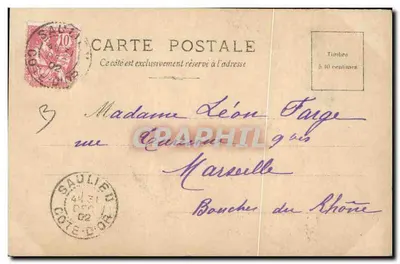 CARTE POSTALE
Ce côté est exclusivement réservé à l'adresse
Timbre
à 10 centimes
10
Madame Léon Farge
rue
Marseille
Bouches du Rhône
SAULIEU
31
DEC
02
CÔTE-D'OR
CARTHAPHILIE